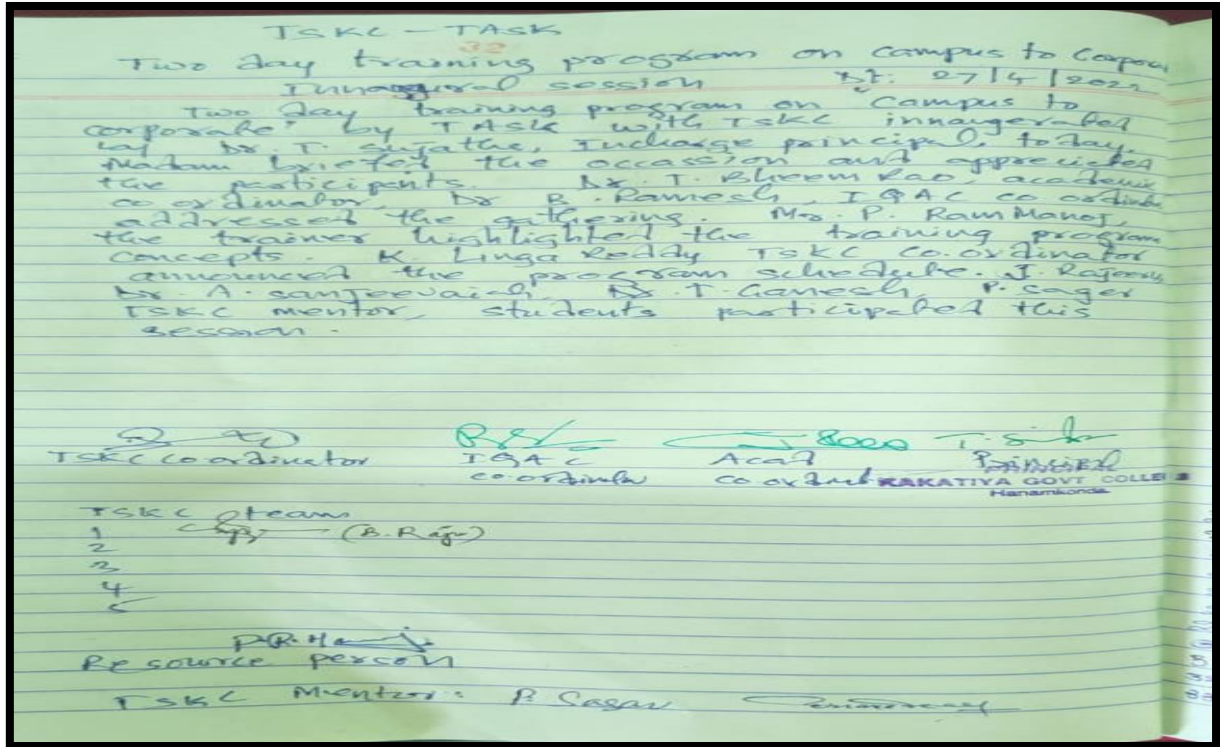 TSKC - TASK
32
Two day training program on campus to Corpor
Innaugural session Dt: 27/4/2022
Two day training program on "Campus to
corporate" by TASK with TSKC innaugerated
by Dr. T. Sujatha, Incharge principal, today.
Madam briefed the occassion and appreciated
the participents. Dr. T. Bheem Rao, academic
co ordinator, Dr B. Ramesh, IQAC co ordinator
addressed the gathering. Mr. P. Ram Manoj,
the trainer highlighted the training program
concepts. K. Linga Reddy TSKC co.ordinator
announced the program schedule. J. Rajeeru
Dr. A. sanjeevaiah, Dr. T. Ganesh, P. Sager
TSKC mentor, students participated this
session.
TSKC co ordinator IQAC Acad Principal
co.ordinator co.ordinator KAKATIYA GOVT COLLEGE
Hanamkonda
TSKC team
1 (B. Raju)
2
3
4
5
Resource person
TSKC Mentor: P. Sagar